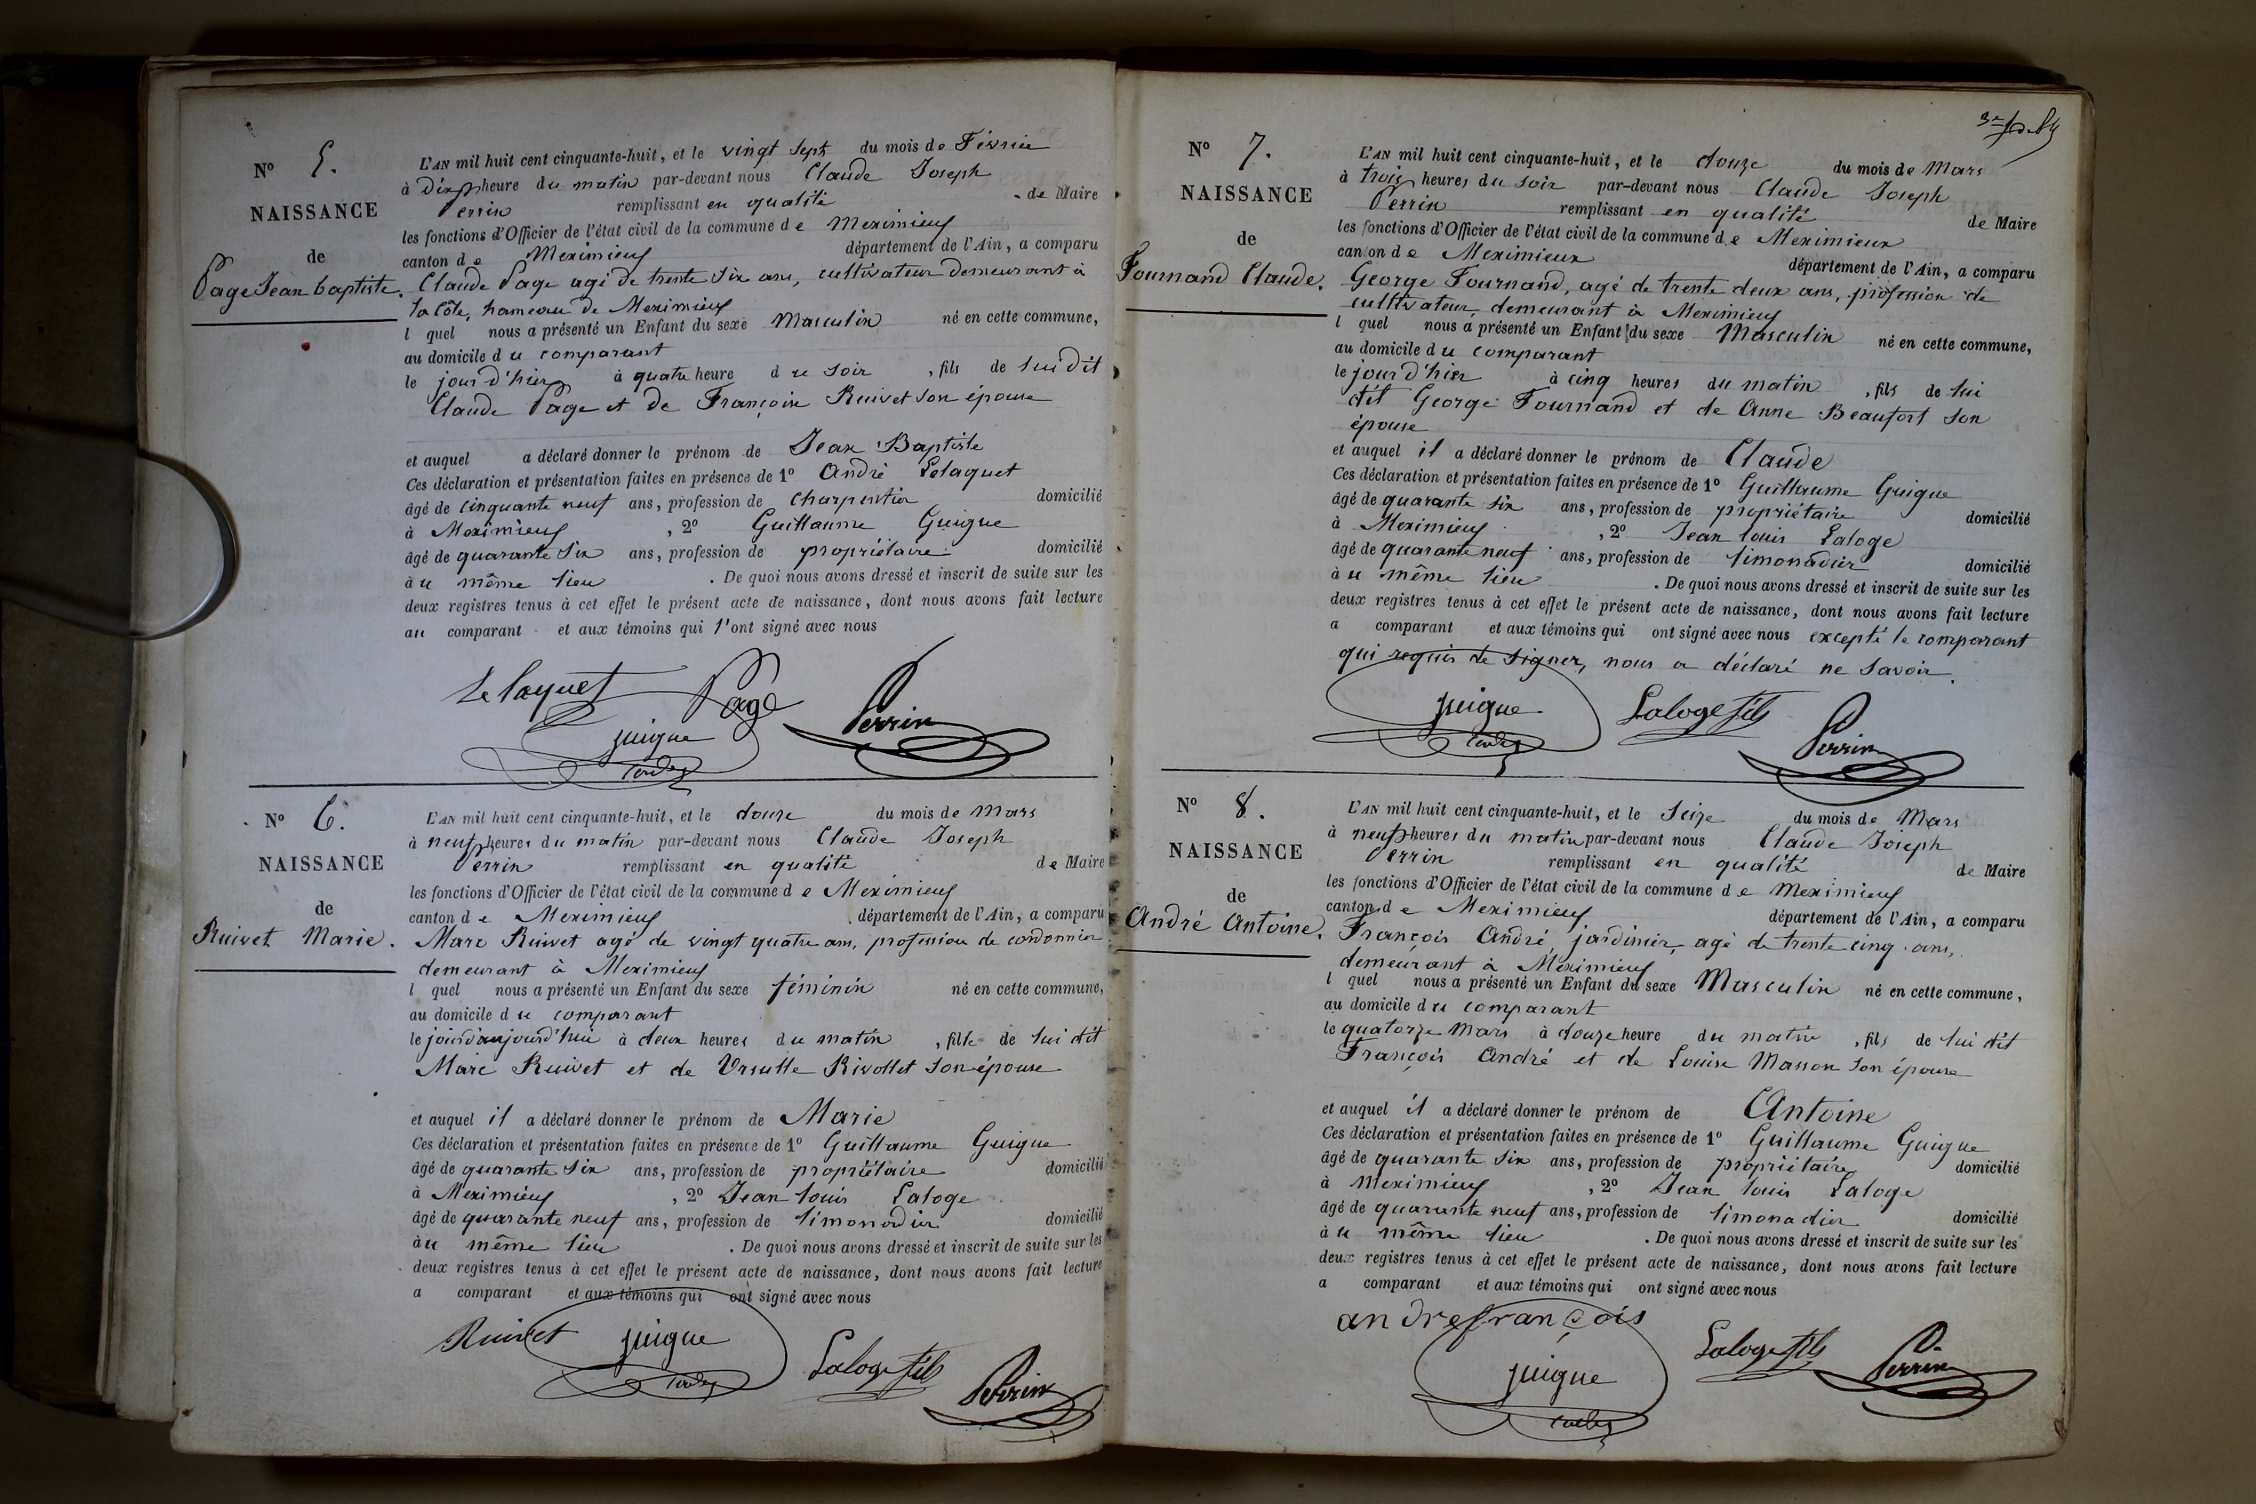 No 5.
NAISSANCE
de
Page Jean baptiste.
L'AN mil huit cent cinquante-huit, et le vingt sept du mois de Février
à Dix heure du matin par-devant nous Claude Joseph
Perrin remplissant en qualité de Maire
les fonctions d'Officier de l'état civil de la commune de Meximieux
canton de Meximieux département de l'Ain, a comparu
Claude Page agé de trente six ans, cultivateur demeurant à
la Côte, hameau de Meximieux
l quel nous a présenté un Enfant du sexe Masculin né en cette commune,
au domicile du comparant
le jour d'hier à quatre heure du soir, fils de lui dit
Claude Page et de Françoise Ruivet son épouse
et auquel a déclaré donner le prénom de Jean Baptiste
Ces déclaration et présentation faites en présence de 1o André Lelaquet
âgé de cinquante neuf ans, profession de charpentier domicilié
à Meximieux, 2o Guillaume Guigue
âgé de quarante six ans, profession de propriétaire domicilié
au même lieu. De quoi nous avons dressé et inscrit de suite sur les
deux registres tenus à cet effet le présent acte de naissance, dont nous avons fait lecture
au comparant et aux témoins qui l'ont signé avec nous
Lelaquet Page Perrin
guigue
No 6.
NAISSANCE
de
Ruivet Marie.
L'AN mil huit cent cinquante-huit, et le douze du mois de Mars
à neuf heures du matin par-devant nous Claude Joseph
Perrin remplissant en qualité de Maire
les fonctions d'Officier de l'état civil de la commune de Meximieux
canton de Meximieux département de l'Ain, a comparu
Marc Ruivet agé de vingt quatre ans, profession de cordonnier
demeurant à Meximieux
l quel nous a présenté un Enfant du sexe féminin né en cette commune,
au domicile du comparant
le jourd'aujourd'hui à deux heures du matin, fille de lui dit
Marc Ruivet et de Ursulle Rivollet son épouse
et auquel il a déclaré donner le prénom de Marie
Ces déclaration et présentation faites en présence de 1o Guillaume Guigue
âgé de quarante six ans, profession de propriétaire domicilié
à Meximieux, 2o Jean louis Laloge
âgé de quarante neuf ans, profession de limonadier domicilié
au même lieu. De quoi nous avons dressé et inscrit de suite sur les
deux registres tenus à cet effet le présent acte de naissance, dont nous avons fait lecture
a comparant et aux témoins qui ont signé avec nous
Ruivet guigue Laloge fils Perrin
No 7.
NAISSANCE
de
Fournand Claude.
L'AN mil huit cent cinquante-huit, et le douze du mois de Mars
à trois heures du soir par-devant nous Claude Joseph
Perrin remplissant en qualité de Maire
les fonctions d'Officier de l'état civil de la commune de Meximieux
canton de Meximieux département de l'Ain, a comparu
George Fournand, agé de trente deux ans, profession de
cultivateur, demeurant à Meximieux
l quel nous a présenté un Enfant du sexe Masculin né en cette commune,
au domicile du comparant
le jour d'hier à cinq heures du matin, fils de lui
dit George Fournand et de Anne Beaufort son
épouse
et auquel il a déclaré donner le prénom de Claude
Ces déclaration et présentation faites en présence de 1o Guillaume Guigue
âgé de quarante six ans, profession de propriétaire domicilié
à Meximieux, 2o Jean louis Laloge
âgé de quarante neuf ans, profession de limonadier domicilié
au même lieu. De quoi nous avons dressé et inscrit de suite sur les
deux registres tenus à cet effet le présent acte de naissance, dont nous avons fait lecture
a comparant et aux témoins qui ont signé avec nous excepté le comparant
qui requis de signer, nous a déclaré ne savoir.
guigue Laloge fils Perrin
No 8.
NAISSANCE
de
André Antoine.
L'AN mil huit cent cinquante-huit, et le Seize du mois de Mars
à neuf heures du matin par-devant nous Claude Joseph
Perrin remplissant en qualité de Maire
les fonctions d'Officier de l'état civil de la commune de Meximieux
canton de Meximieux département de l'Ain, a comparu
François André, jardinier, agé de trente cinq ans,
demeurant à Meximieux
l quel nous a présenté un Enfant du sexe Masculin né en cette commune,
au domicile du comparant
le quatorze Mars à douze heure du matin, fils de lui dit
François André et de Louise Masson son épouse
et auquel il a déclaré donner le prénom de Antoine
Ces déclaration et présentation faites en présence de 1o Guillaume Guigue
âgé de quarante six ans, profession de propriétaire domicilié
à Meximieux, 2o Jean louis Laloge
âgé de quarante neuf ans, profession de limonadier domicilié
au même lieu. De quoi nous avons dressé et inscrit de suite sur les
deux registres tenus à cet effet le présent acte de naissance, dont nous avons fait lecture
a comparant et aux témoins qui ont signé avec nous
andrefrançois Laloge fils Perrin
guigue